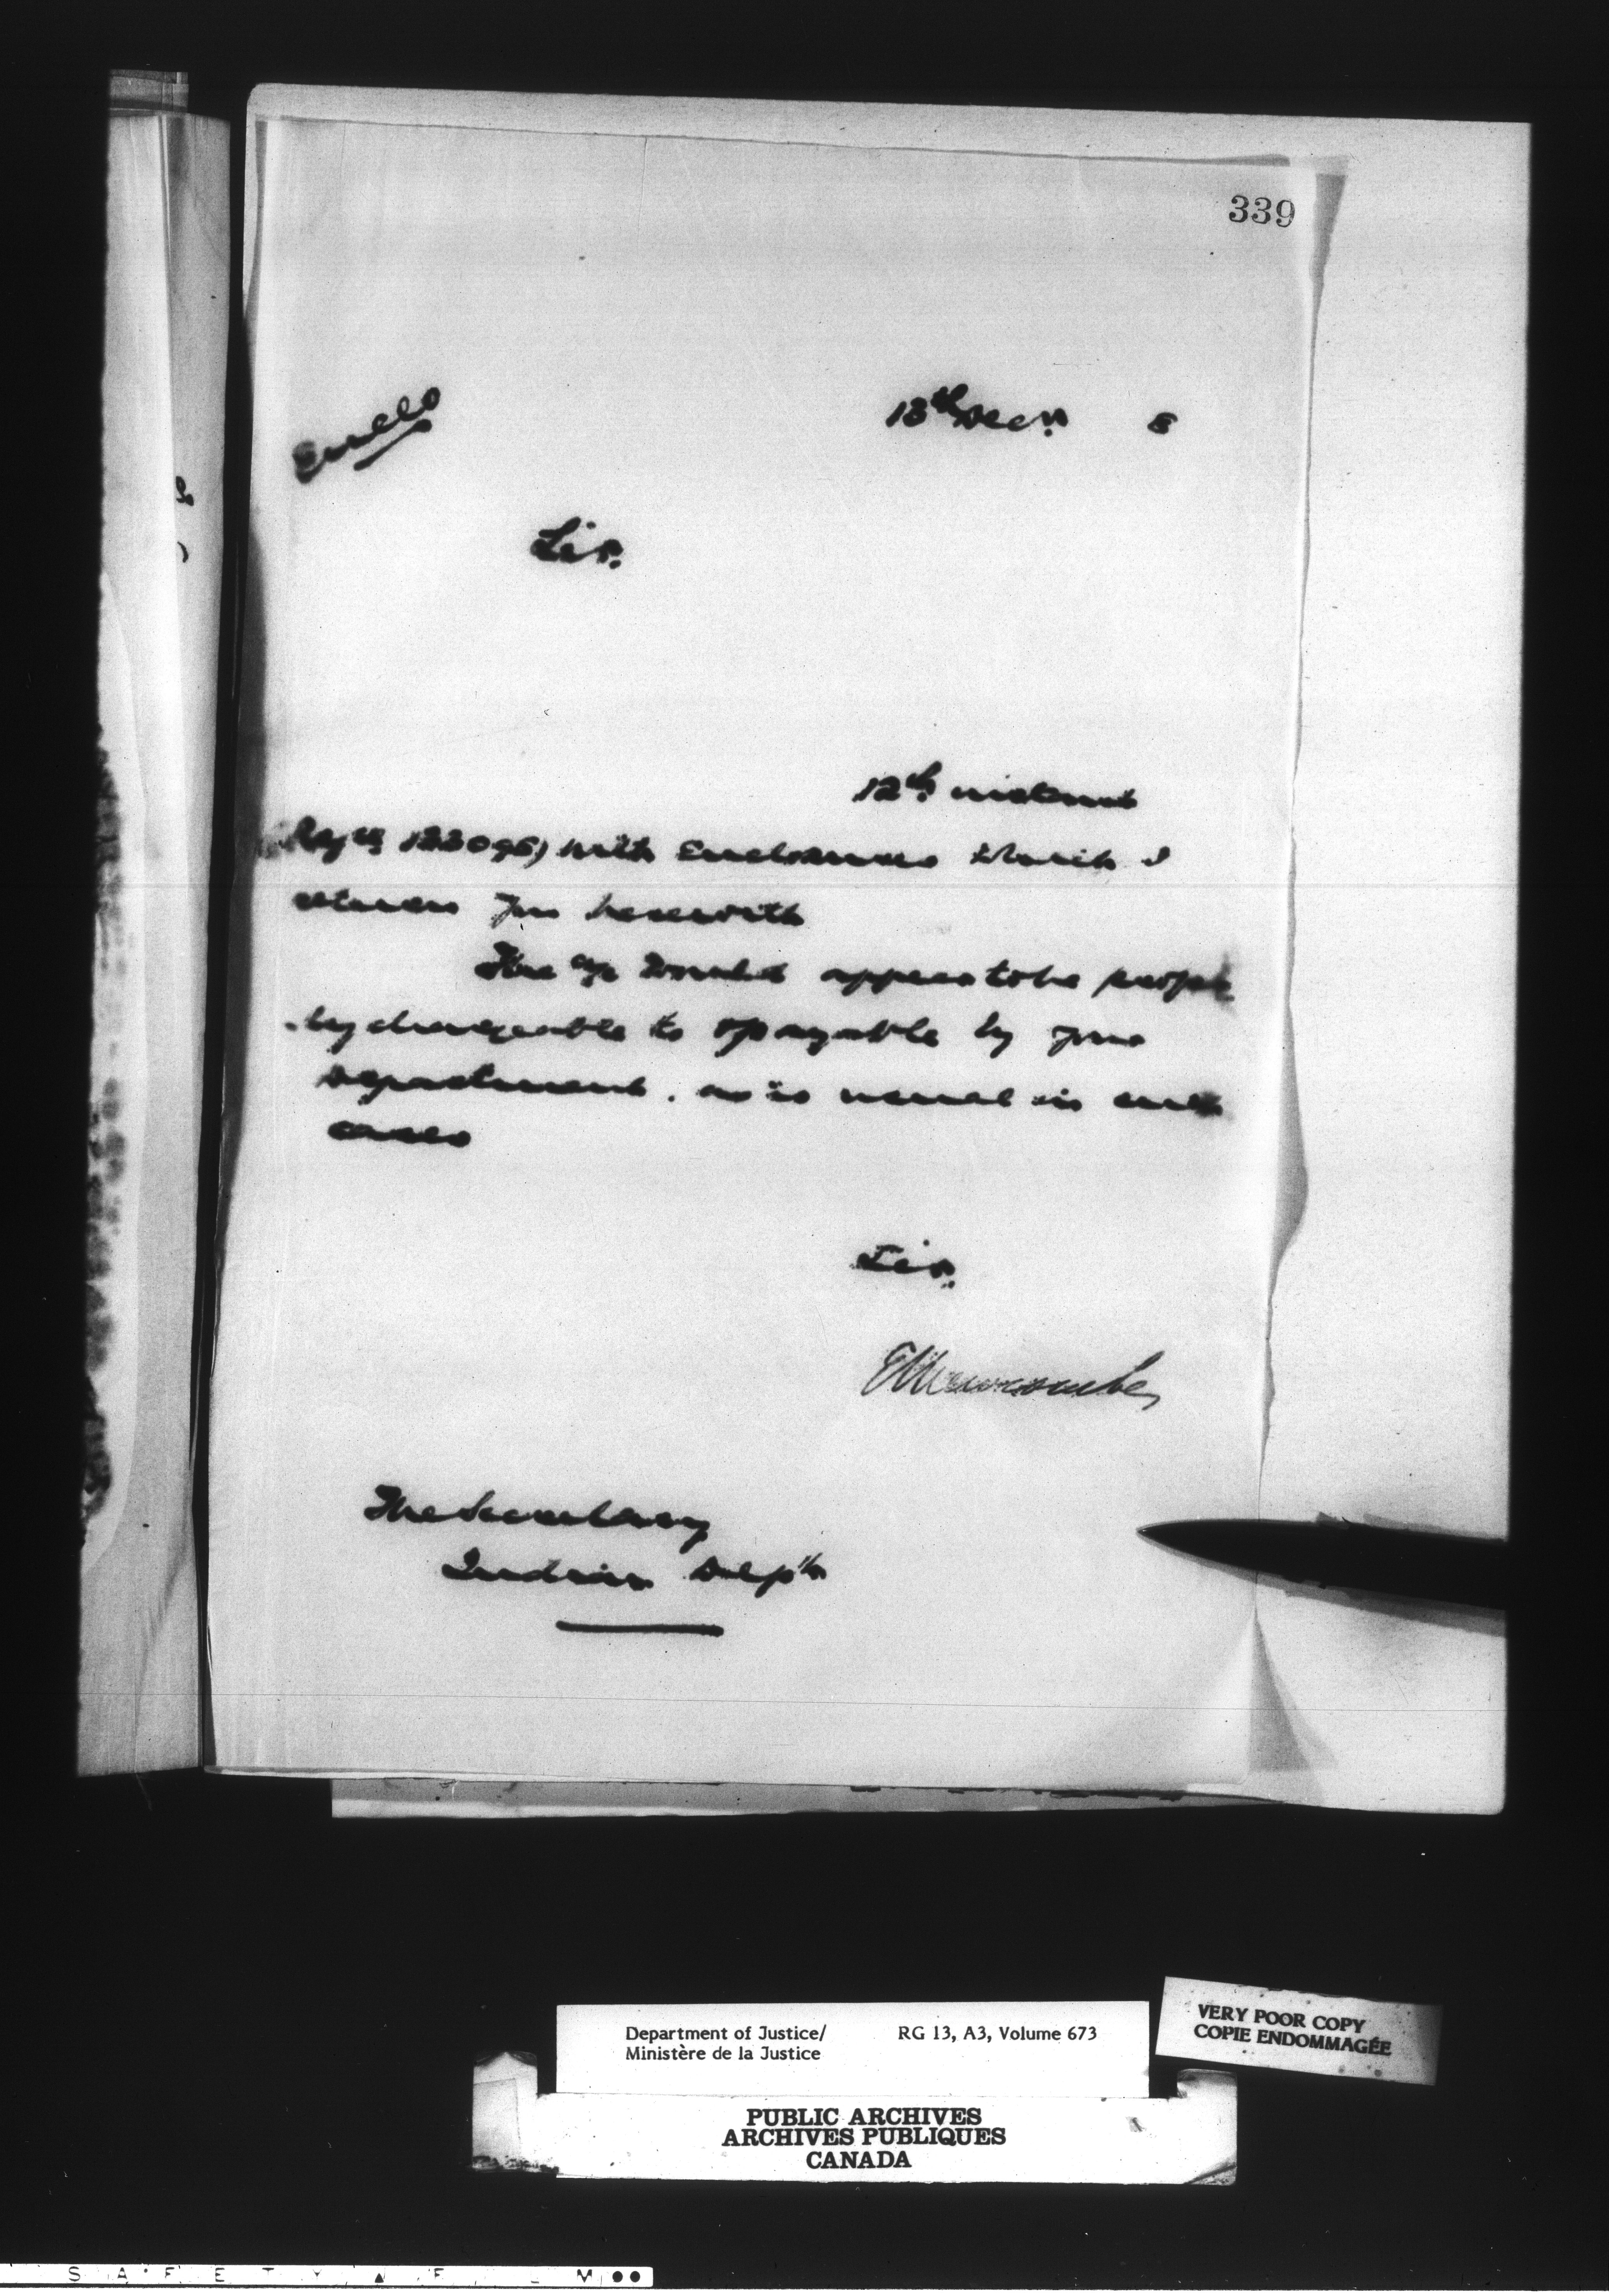 339
Encls
13th Decr. 8
Sir.
12th instant
122096) with Enclosures which I
return you herewith
The a/c Enclosed appears to be proper
ly chargeable to & payable by your
Department. as is usual in such
cases
Sir.
E L Newcombe
The Secretary
Indian Dep't
Department of Justice/
Ministère de la Justice
RG 13, A3, Volume 673
VERY POOR COPY
COPIE ENDOMMAGÉE
PUBLIC ARCHIVES
ARCHIVES PUBLIQUES
CANADA
S A F E T Y ▲ F L M ●●